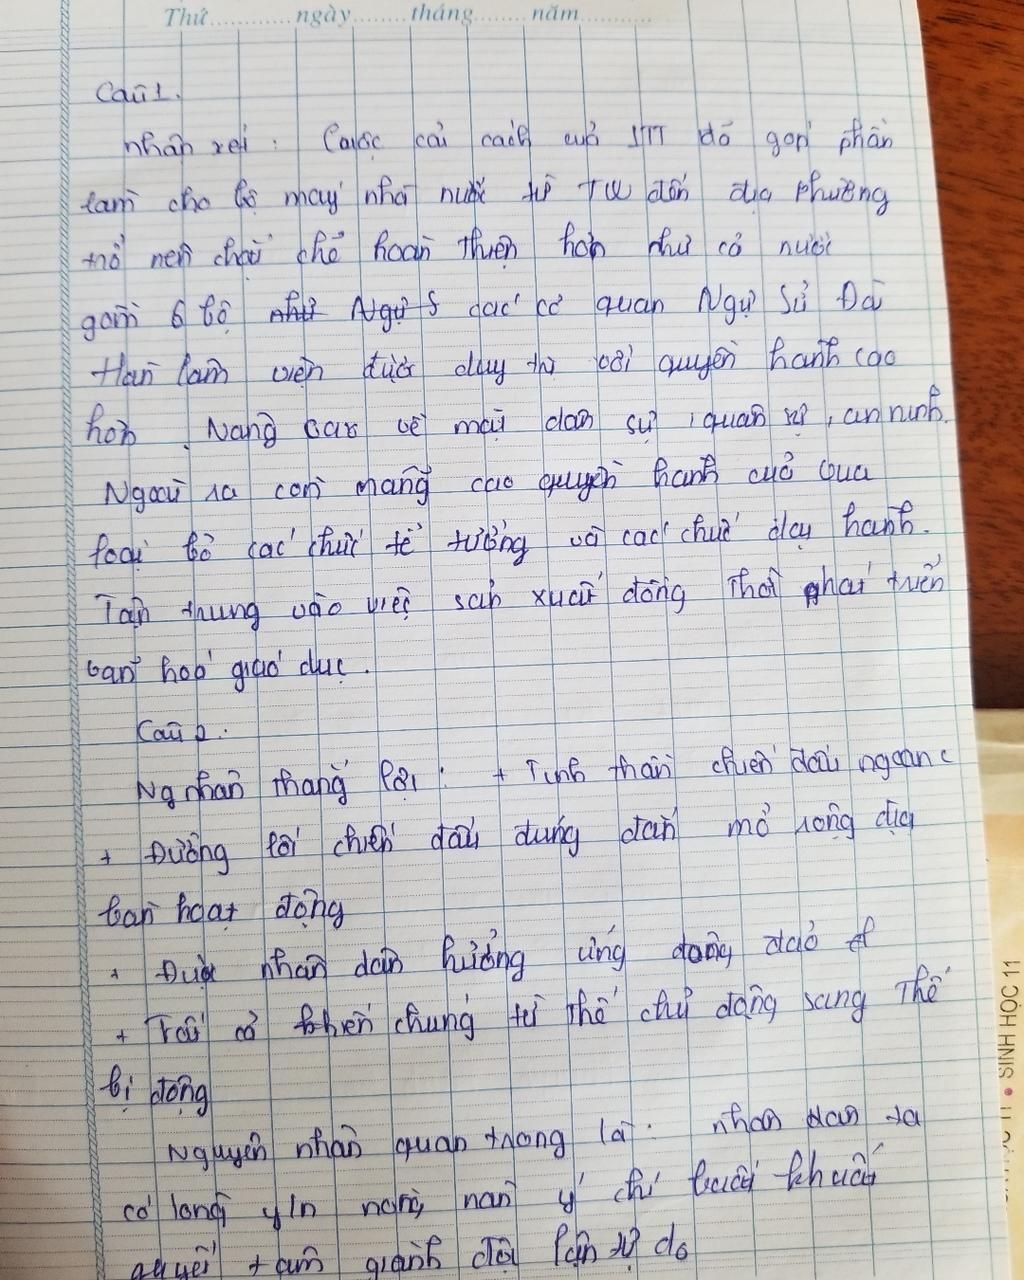 Thứ............ngày........tháng........năm...........
Câu 1.
nhận xét : Cuộc cải cách của LTT đã góp phần
làm cho bộ máy nhà nước từ TW đến địa phương
trở nên chặt chẽ hoàn thiện hơn như cả nước
gồm 6 bộ các cơ quan Ngự Sử Đài
Hàn lâm viện được duy trì với quyền hành cao
hơn . Nâng cao về mặt dân sự , quân sự , an ninh.
Ngoài ra còn nâng cao quyền hành của vua
loại bỏ các chức tể tướng và các chức đại hành.
Tập trung vào việc sản xuất đồng thời phát triển
văn hoá giáo dục.
Câu 2.
Ng nhân thắng lợi : + Tinh thần chiến đấu ngoan c
+ Đường lối chiến đấu đúng đắn mở rộng địa
bàn hoạt động
+ Được nhân dân hưởng ứng đông đảo
+ Tất cả khiến chúng từ thế chủ động sang thế
bị động
Nguyên nhân quan trọng là : nhân dân ta
có lòng yêu nồng nàn ý chí bất khuất
quyết tâm giành độc lập tự do
SINH HỌC 11